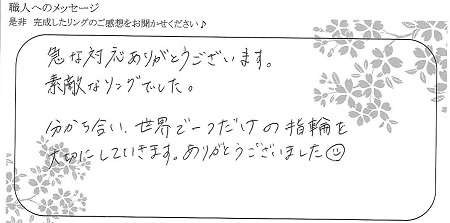 職人へのメッセージ
是非 完成したリングのご感想をお聞かせください♪
急な対応ありがとうございます。
素敵なリングでした。
分かち合い、世界で一つだけの指輪を
大切にしていきます。ありがとうございました☺